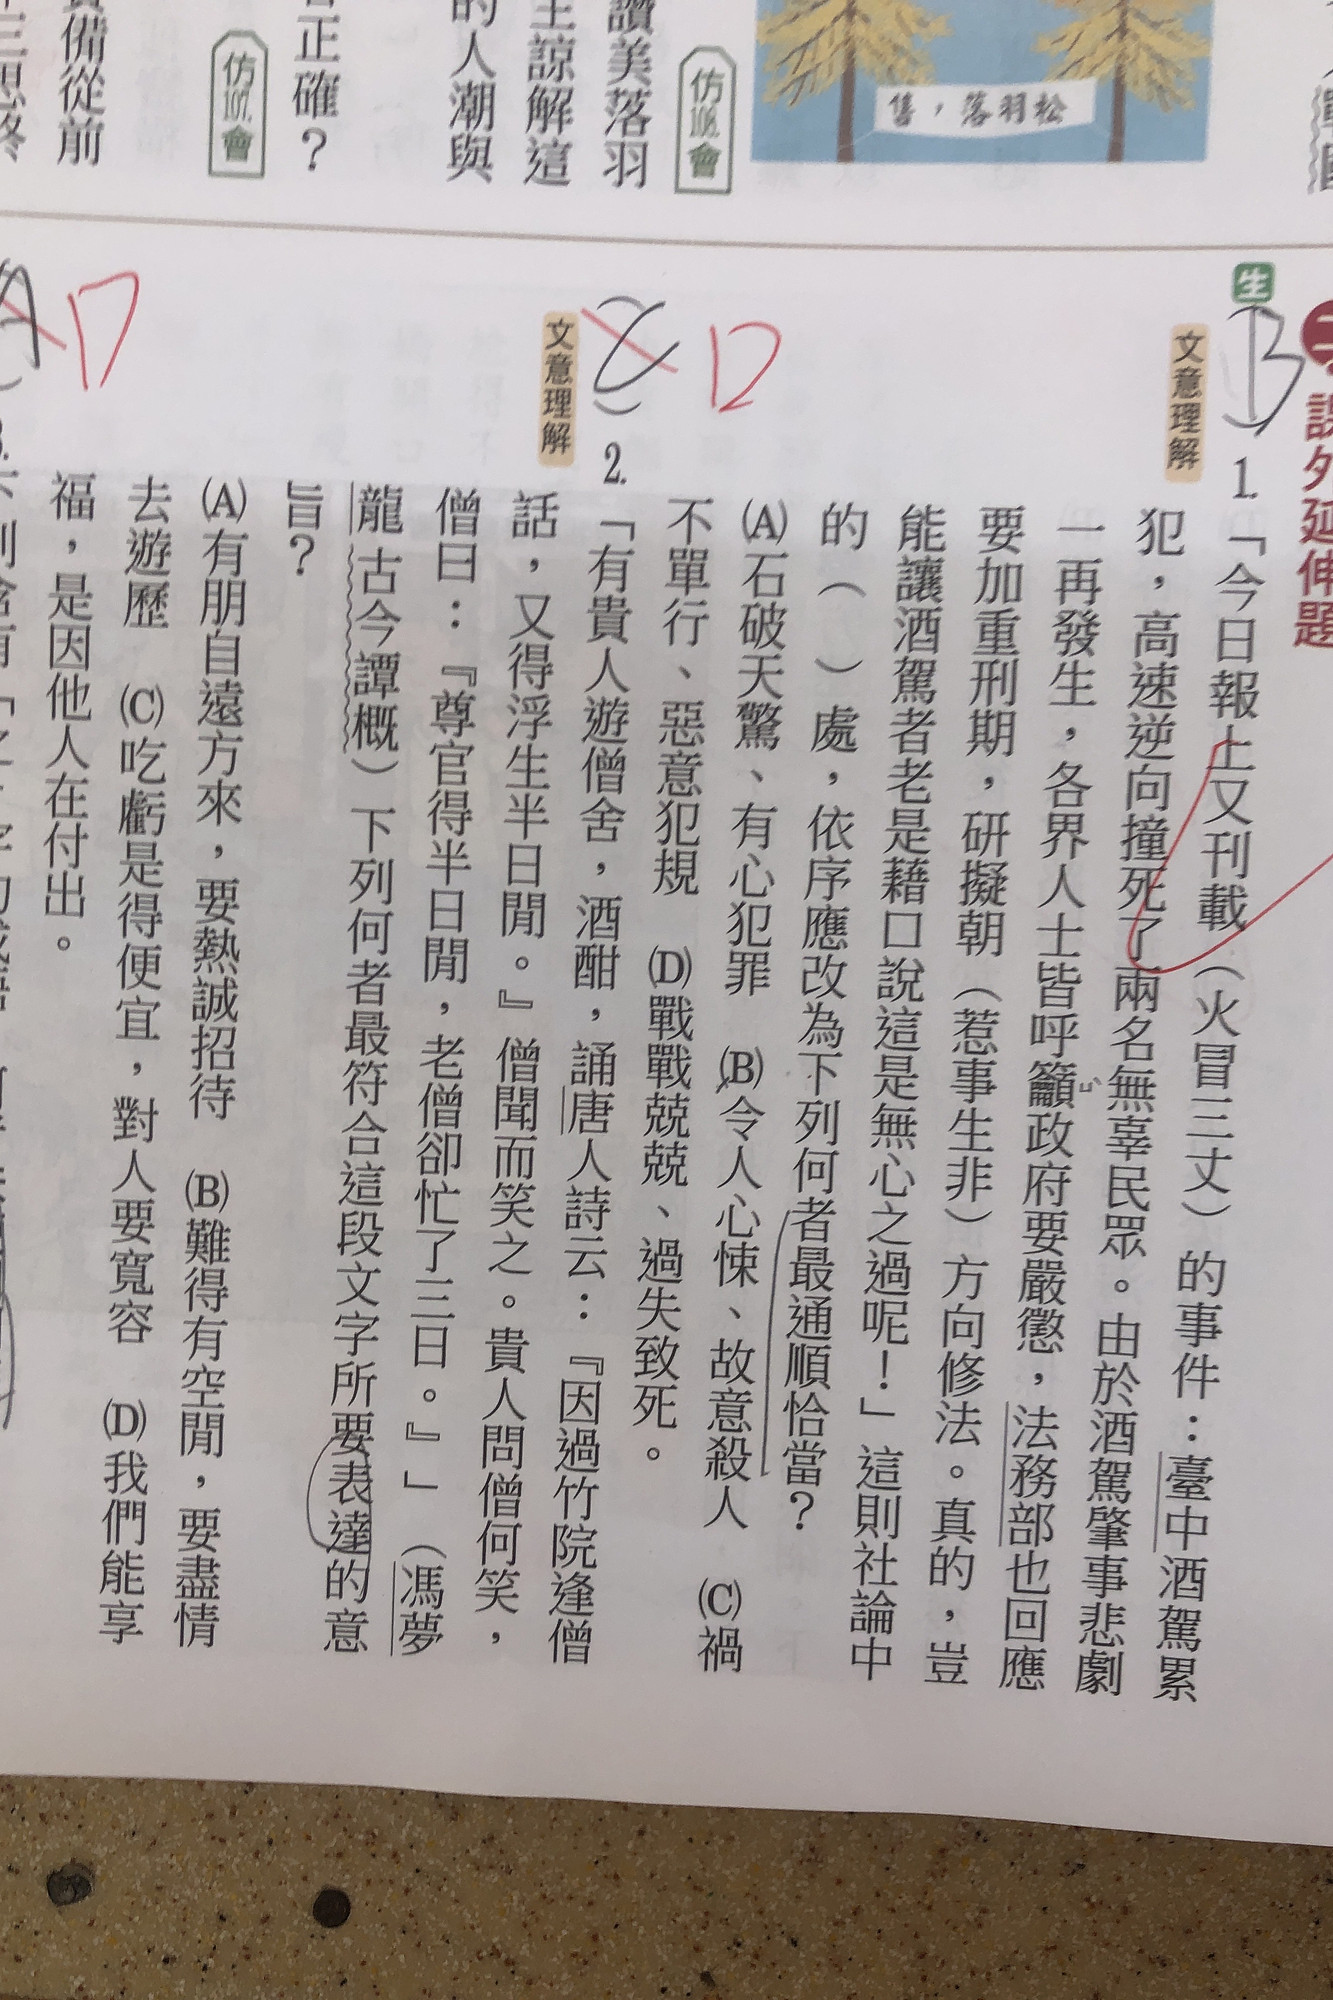 售，落羽松
仿108.會
讚美落羽
諒解這
的人潮與
正確？
仿107.會
備從前
課外延伸題
生
B
文意理解
1.「今日報上又刊載（火冒三丈）的事件：臺中酒駕累
犯，高速逆向撞死了兩名無辜民眾。由於酒駕肇事悲劇
一再發生，各界人士皆呼籲政府要嚴懲，法務部也回應
要加重刑期，研擬朝（惹事生非）方向修法。真的，豈
能讓酒駕者老是藉口說這是無心之過呢！」這則社論中
的（　）處，依序應改為下列何者最通順恰當？
(A)石破天驚、有心犯罪　(B)令人心悚、故意殺人　(C)禍
不單行、惡意犯規　(D)戰戰兢兢、過失致死。
D
文意理解
2.「有貴人遊僧舍，酒酣，誦唐人詩云：『因過竹院逢僧
話，又得浮生半日閒。』僧聞而笑之。貴人問僧何笑，
僧曰：『尊官得半日閒，老僧卻忙了三日。』」（馮夢
龍古今譚概）下列何者最符合這段文字所要表達的意
旨？
(A)有朋自遠方來，要熱誠招待　(B)難得有空閒，要盡情
去遊歷　(C)吃虧是得便宜，對人要寬容　(D)我們能享
福，是因他人在付出。
A
D